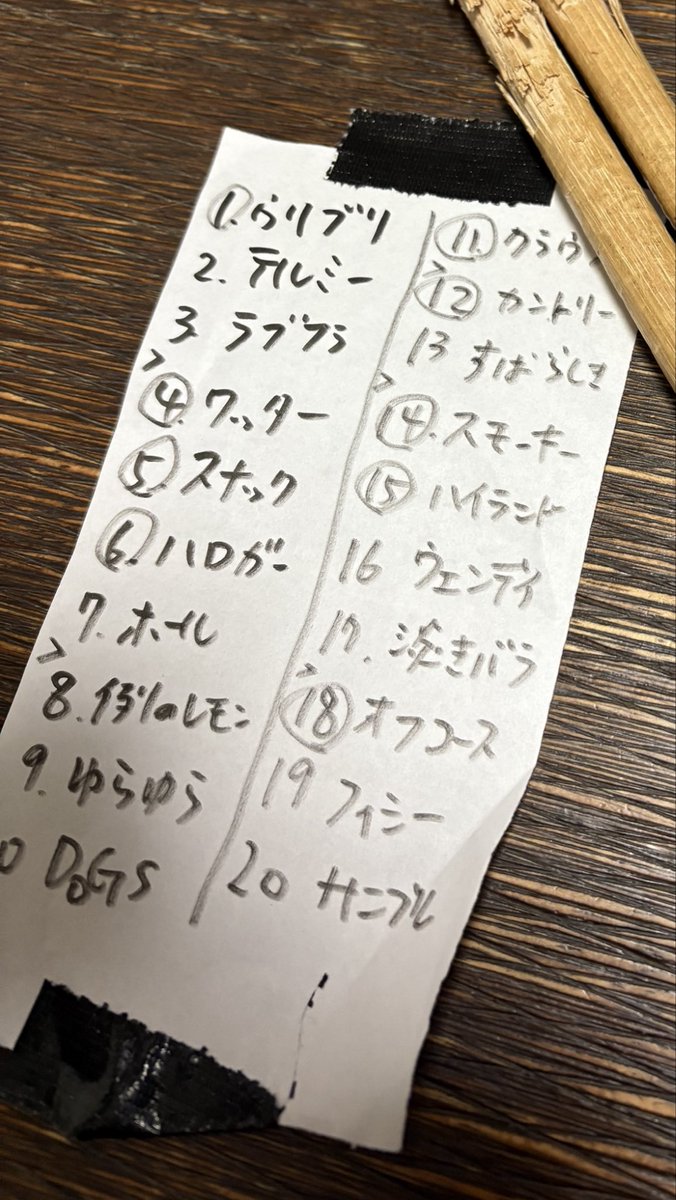 1. ウリブリ
2. テルミー
3. ラブフラ
>
4. ワッター
5. スナック
6. ハロガー
7. ホール
>
8. 偽りのレモン
9. ゆらゆら
0 DoGS
11. クラウ
>
12 カントリー
13 すばらしき
>
14. スモーキー
15 ハイランド
16 ウェンディ
17. 淡きバラ
>
18 オフコース
19 フィシー
20 サニーブル